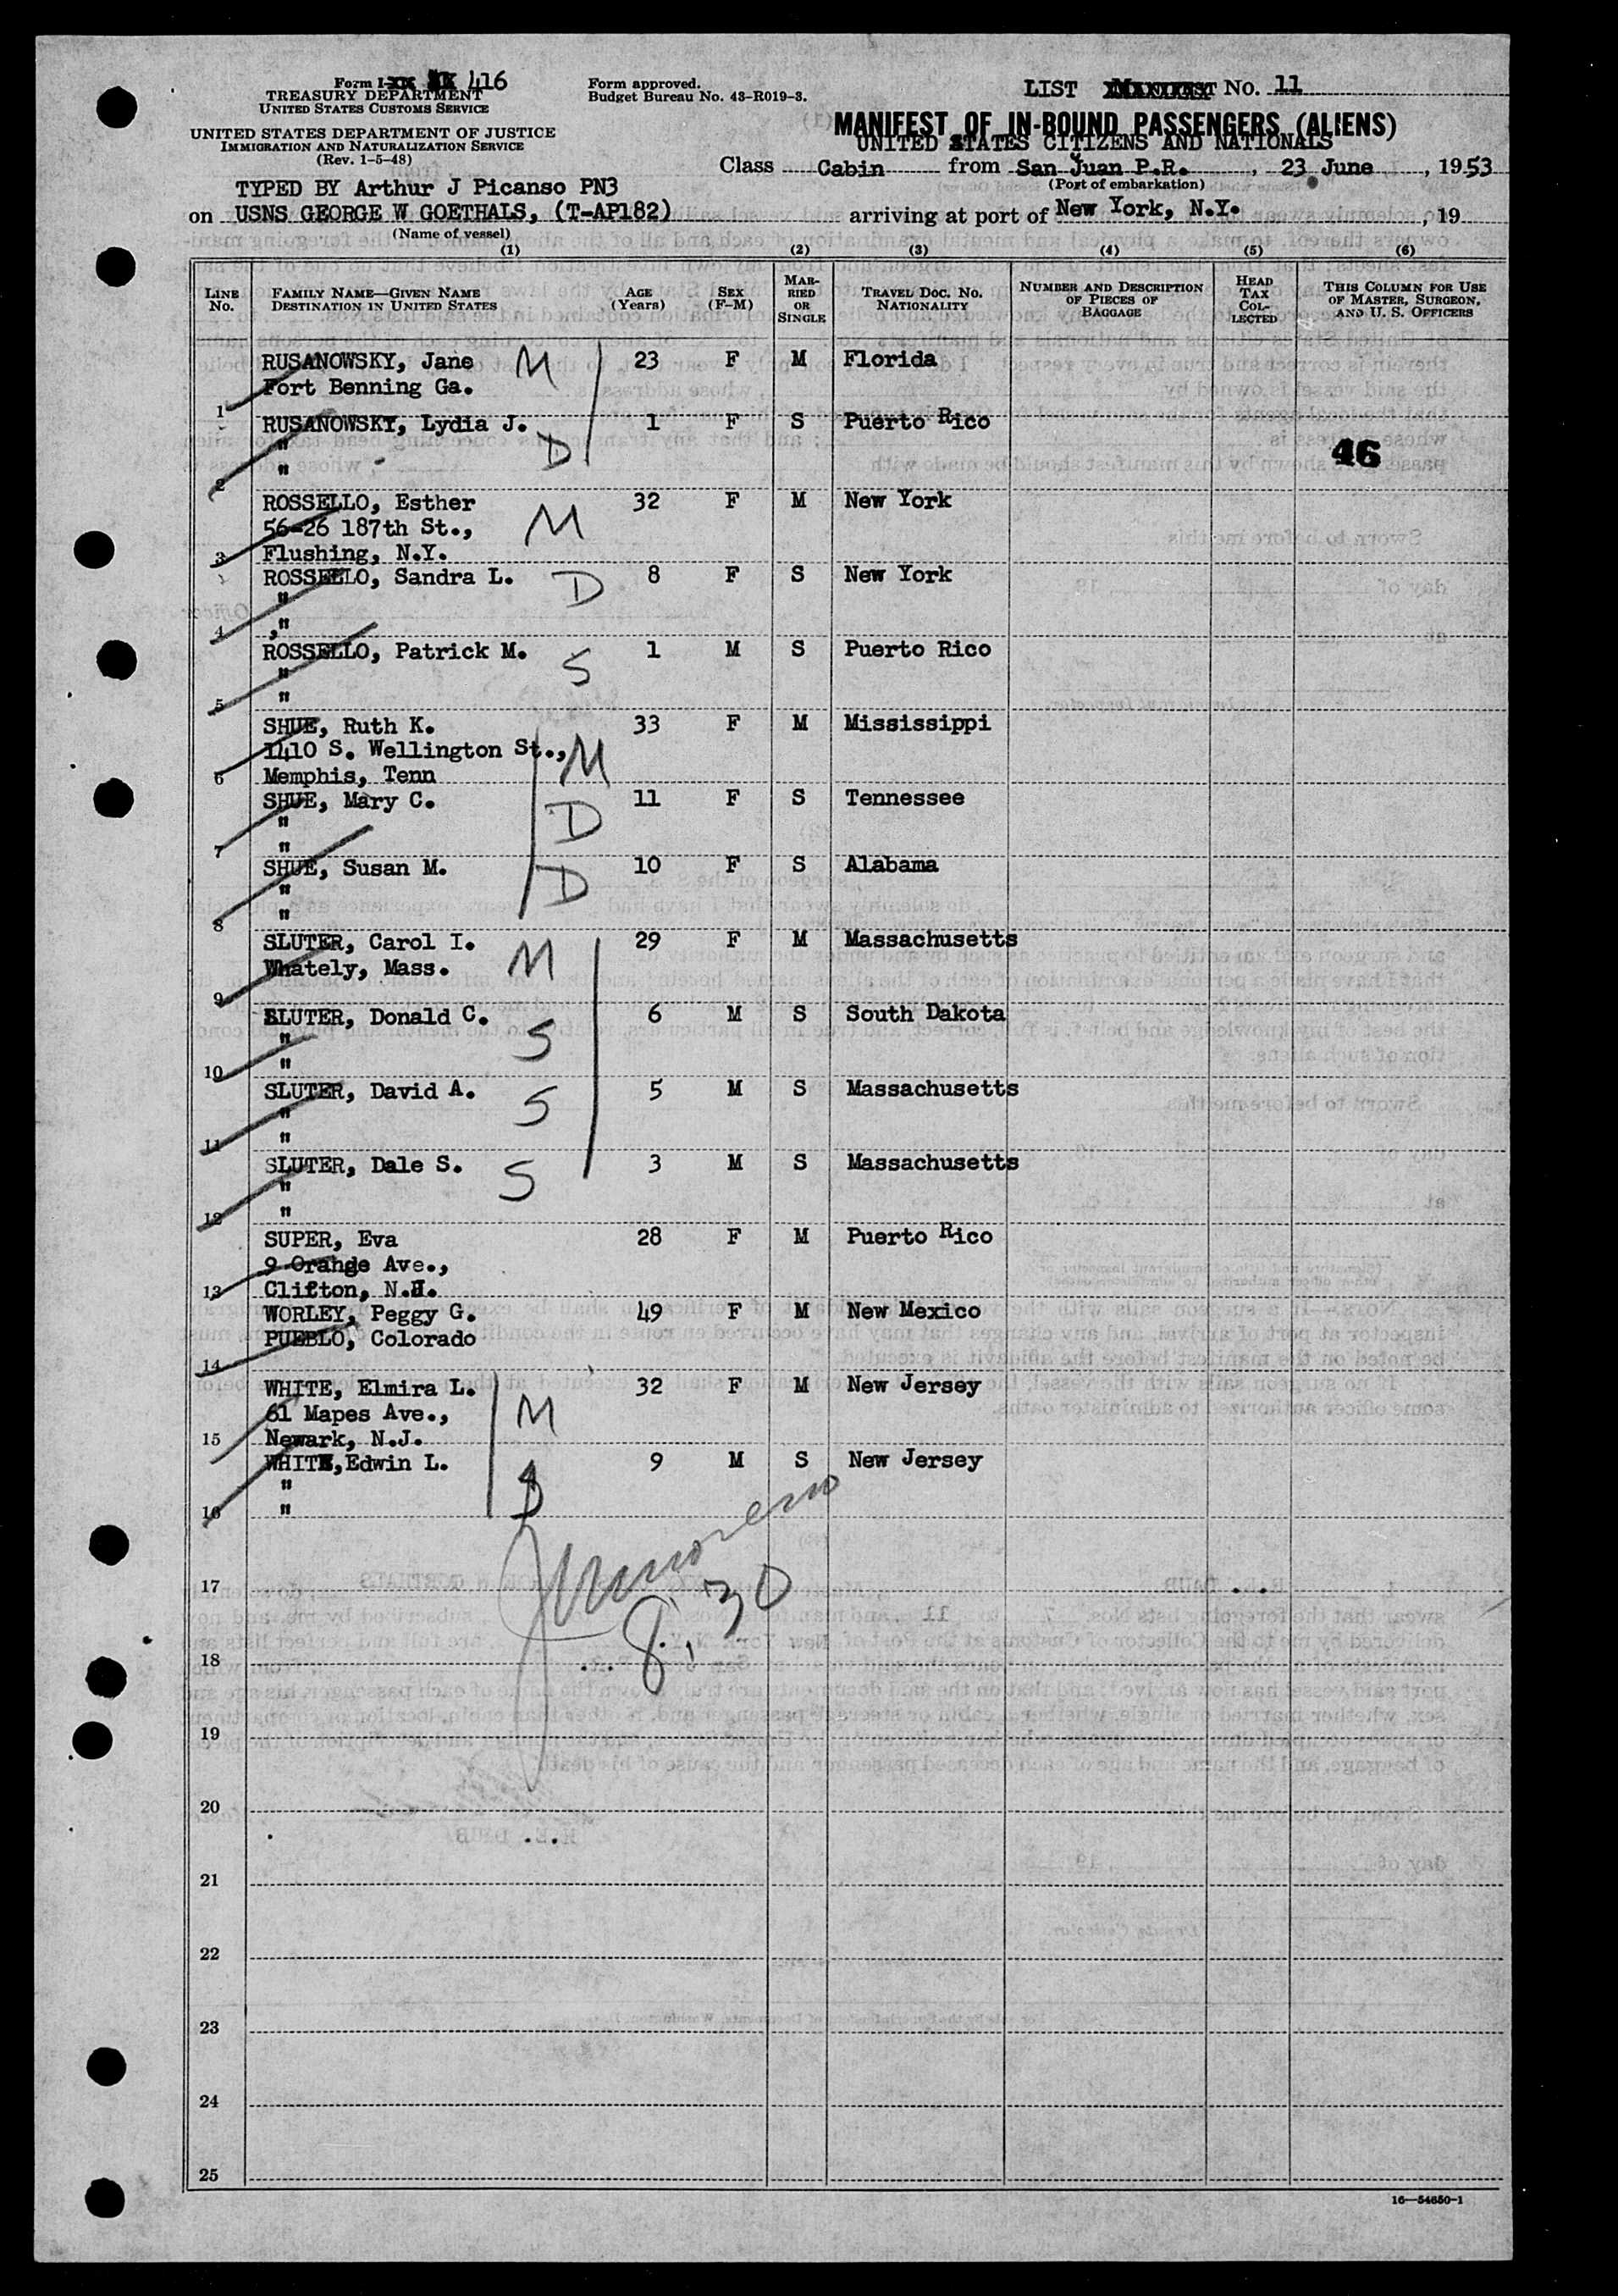 Form I- 416
TREASURY DEPARTMENT
UNITED STATES CUSTOMS SERVICE
UNITED STATES DEPARTMENT OF JUSTICE
IMMIGRATION AND NATURALIZATION SERVICE
(Rev. 1-5-48)
Form approved.
Budget Bureau No. 43-R019-3.
LIST No. 11
MANIFEST OF IN-BOUND PASSENGERS (ALIENS)
UNITED STATES CITIZENS AND NATIONALS
Class Cabin from San Juan P.R. , 23 June , 1953
(Port of embarkation)
TYPED BY Arthur J Picanso PN3
on USNS GEORGE W GOETHALS, (T-AP182) arriving at port of New York, N.Y. , 19
(Name of vessel)
(1) (2) (3) (4) (5) (6)
LINE No. FAMILY NAME—GIVEN NAME DESTINATION IN UNITED STATES AGE (Years) SEX (F-M) MARRIED OR SINGLE TRAVEL DOC. No. NATIONALITY NUMBER AND DESCRIPTION OF PIECES OF BAGGAGE HEAD TAX COLLECTED THIS COLUMN FOR USE OF MASTER, SURGEON, AND U. S. OFFICERS
RUSANOWSKY, Jane M 23 F M Florida
Fort Benning Ga.
1
RUSANOWSKY, Lydia J. 1 F S Puerto Rico
" D 46
"
2
ROSSELLO, Esther 32 F M New York
56-26 187th St., M
3 Flushing, N.Y.
ROSSELLO, Sandra L. D 8 F S New York
"
4 "
ROSSELLO, Patrick M. S 1 M S Puerto Rico
"
5 "
SHUE, Ruth K. 33 F M Mississippi
1410 S. Wellington St., M
6 Memphis, Tenn
SHUE, Mary C. 11 F S Tennessee
" D
7 "
SHUE, Susan M. 10 F S Alabama
" D
"
8
SLUTER, Carol I. 29 F M Massachusetts
Whately, Mass. M
9
SLUTER, Donald C. 6 M S South Dakota
" S
10 "
SLUTER, David A. 5 M S Massachusetts
" S
11 "
SLUTER, Dale S. 3 M S Massachusetts
" S
12 "
SUPER, Eva 28 F M Puerto Rico
9 Orange Ave.,
13 Clifton, N.J.
WORLEY, Peggy G. 49 F M New Mexico
PUEBLO, Colorado
14
WHITE, Elmira L. 32 F M New Jersey
61 Mapes Ave., M
15 Newark, N.J.
WHITE, Edwin L. 9 M S New Jersey
"
16 "
17
8:30
18
19
20
21
22
23
24
25
16—54650-1